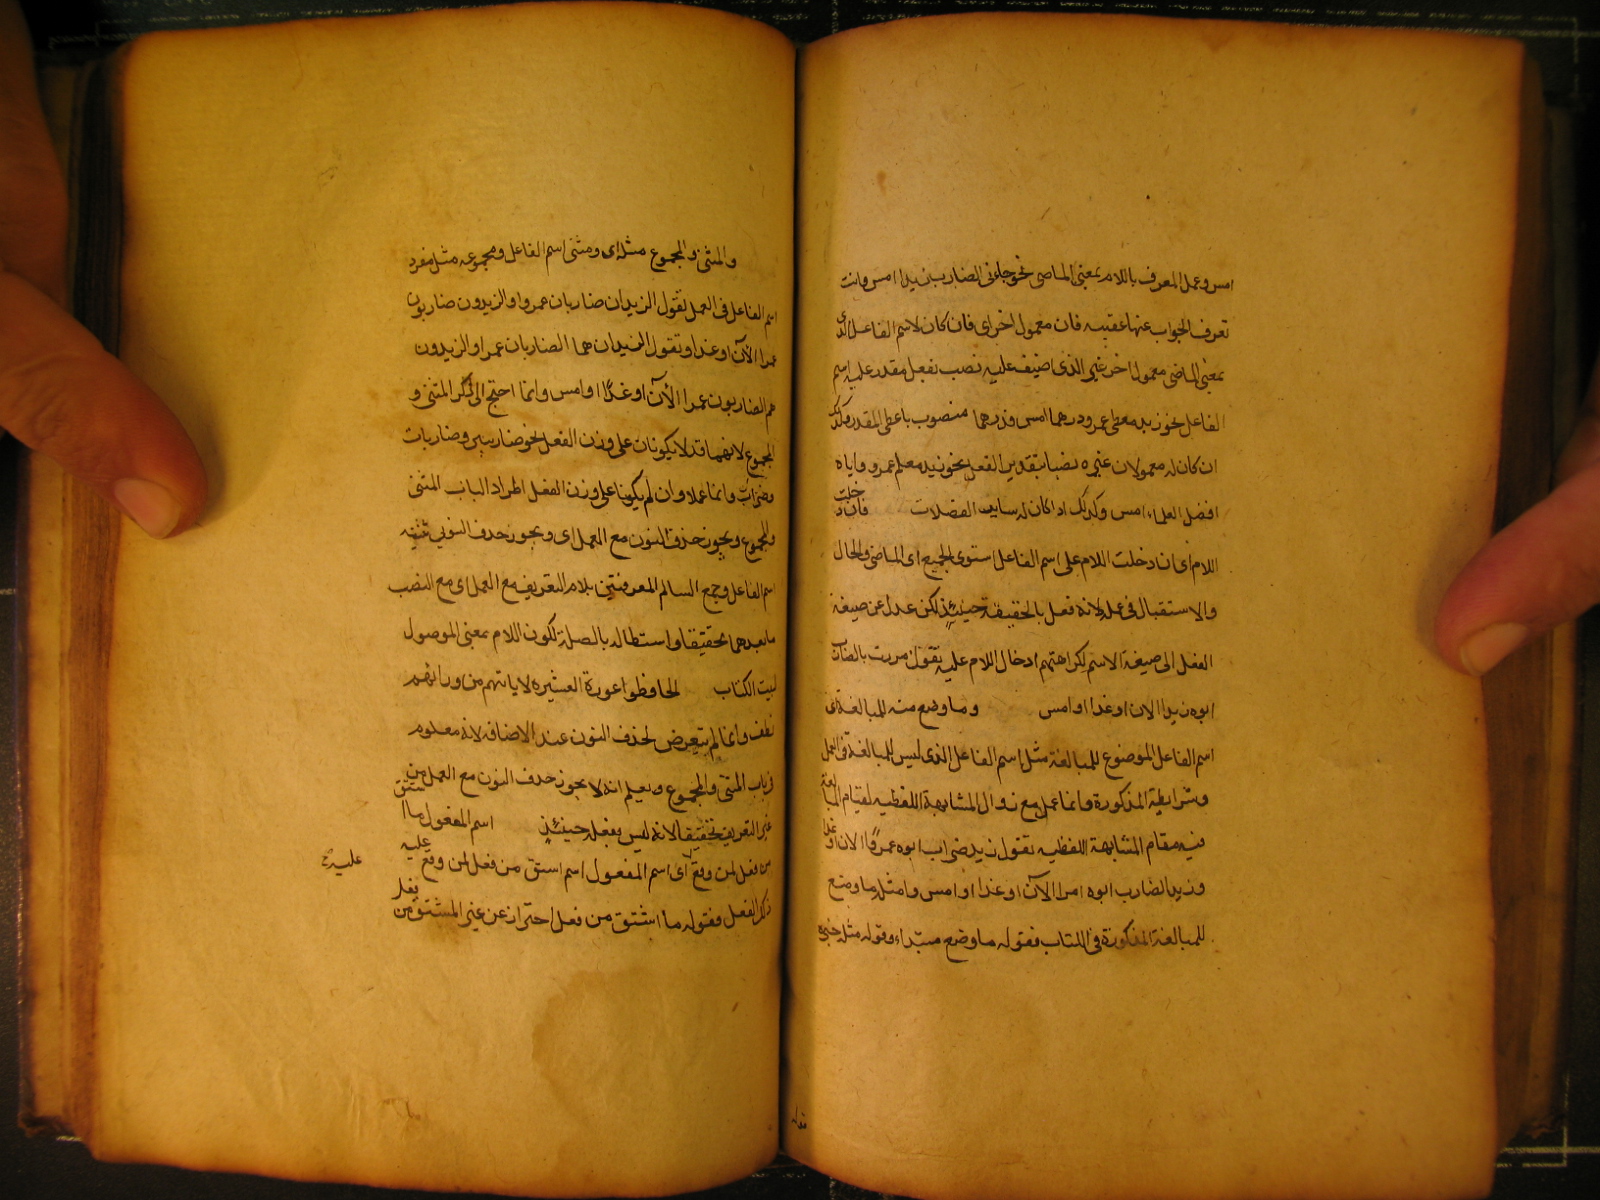 امس وعمل المعرف باللام بمعنى الماضى نحو جاءنى الضارب زيدا امس وانت
تعرف الجواب عنها عقيبه فان معمول اخر اى فان كان لاسم الفاعل الذى
بمعنى الماضى معمول اخر غير الذى اضيف عليه نصب بفعل مقدر عليه اسم
الفاعل نحو زيد معطى عمرو درهما امس فدرهما منصوب باعطى المقدر وكذلك
ان كان له معمولان غيره نصبا بتقدير الفعل نحو زيد معلم عمرو اياه
افضل العلماء امس وكذلك اذا كان له سايب الفضلات فان دخلت
اللام اى ان دخلت اللام على اسم الفاعل استوى الجميع اى الماضى والحال
والاستقبال فى عمله لانه فعل بالحقيقة حينئذ لكن عدل عن صيغة
الفعل الى صيغة الاسم لكراهتهم ادخال اللام عليه تقول مررت بالضارب
ابوه زيدا الان او غدا او امس وما وضع منه للمبالغة اى
اسم الفاعل الموضوع للمبالغة مثل اسم الفاعل الذى ليس للمبالغة فى العمل
وشرايطه المذكورة وانما عمل مع زوال المشابهة اللفظيه لقيام المبالغة
فيه مقام المشابهة اللفظيه تقول زيد ضراب ابوه عمروا الان او غدا
وزيد الضارب ابوه امرا الآن او غدا او امس وامثله ما وضع
للمبالغة المذكورة فى الكتاب فقوله ما وضع مبتداء وقوله مثله خبره
والمثنى والمجموع مثله اى ومثنى اسم الفاعل ومجموعه مثل مفرد
اسم الفاعل فى العمل تقول الزيدان ضاربان عمروا والزيدون ضاربون
عمرا الآن او غدا وتقول الزيدان هما الضاربان عمرا والزيدون
هم الضاربون عمرا الآن او غدا او امس وانما احتج الى ذكر المثنى و
المجموع لانهما قد لا يكونان على وزن الفعل نحو ضاربين وضاربات
وضراب وانما عملا وان لم يكونا على وزن الفعل اطراد الباب المثنى
والمجموع ويجوز حذف النون مع العمل اى ويجوز حذف النونى تثنيه
اسم الفاعل وجمع السالم المعرفتين بلام التعريف مع العمل اى مع النصب
ما بعدهما تحقيقا واستطالة بالصلة لكون اللام بمعنى الموصول
لبيت الكتاب الحافظوا عورة العشيرة لا ياتهم من ورائهم
نطف وانما لم يتعرض لحذف النون عند الاضافه لانه معلوم
فى باب المثنى والمجموع ويعلم انه لا يجوز حذف النون مع العمل من
غير التعريف تخفيفا لانه ليس بفعله حينئذ اسم المفعول ما اشتق
من فعل لمن وقع اى اسم المفعول اسم اشتق من فعل لمن وقع عليه
عليه
ذكر الفعل فقوله ما اشتق من فعل احتراز عن غير المشتق من فعل